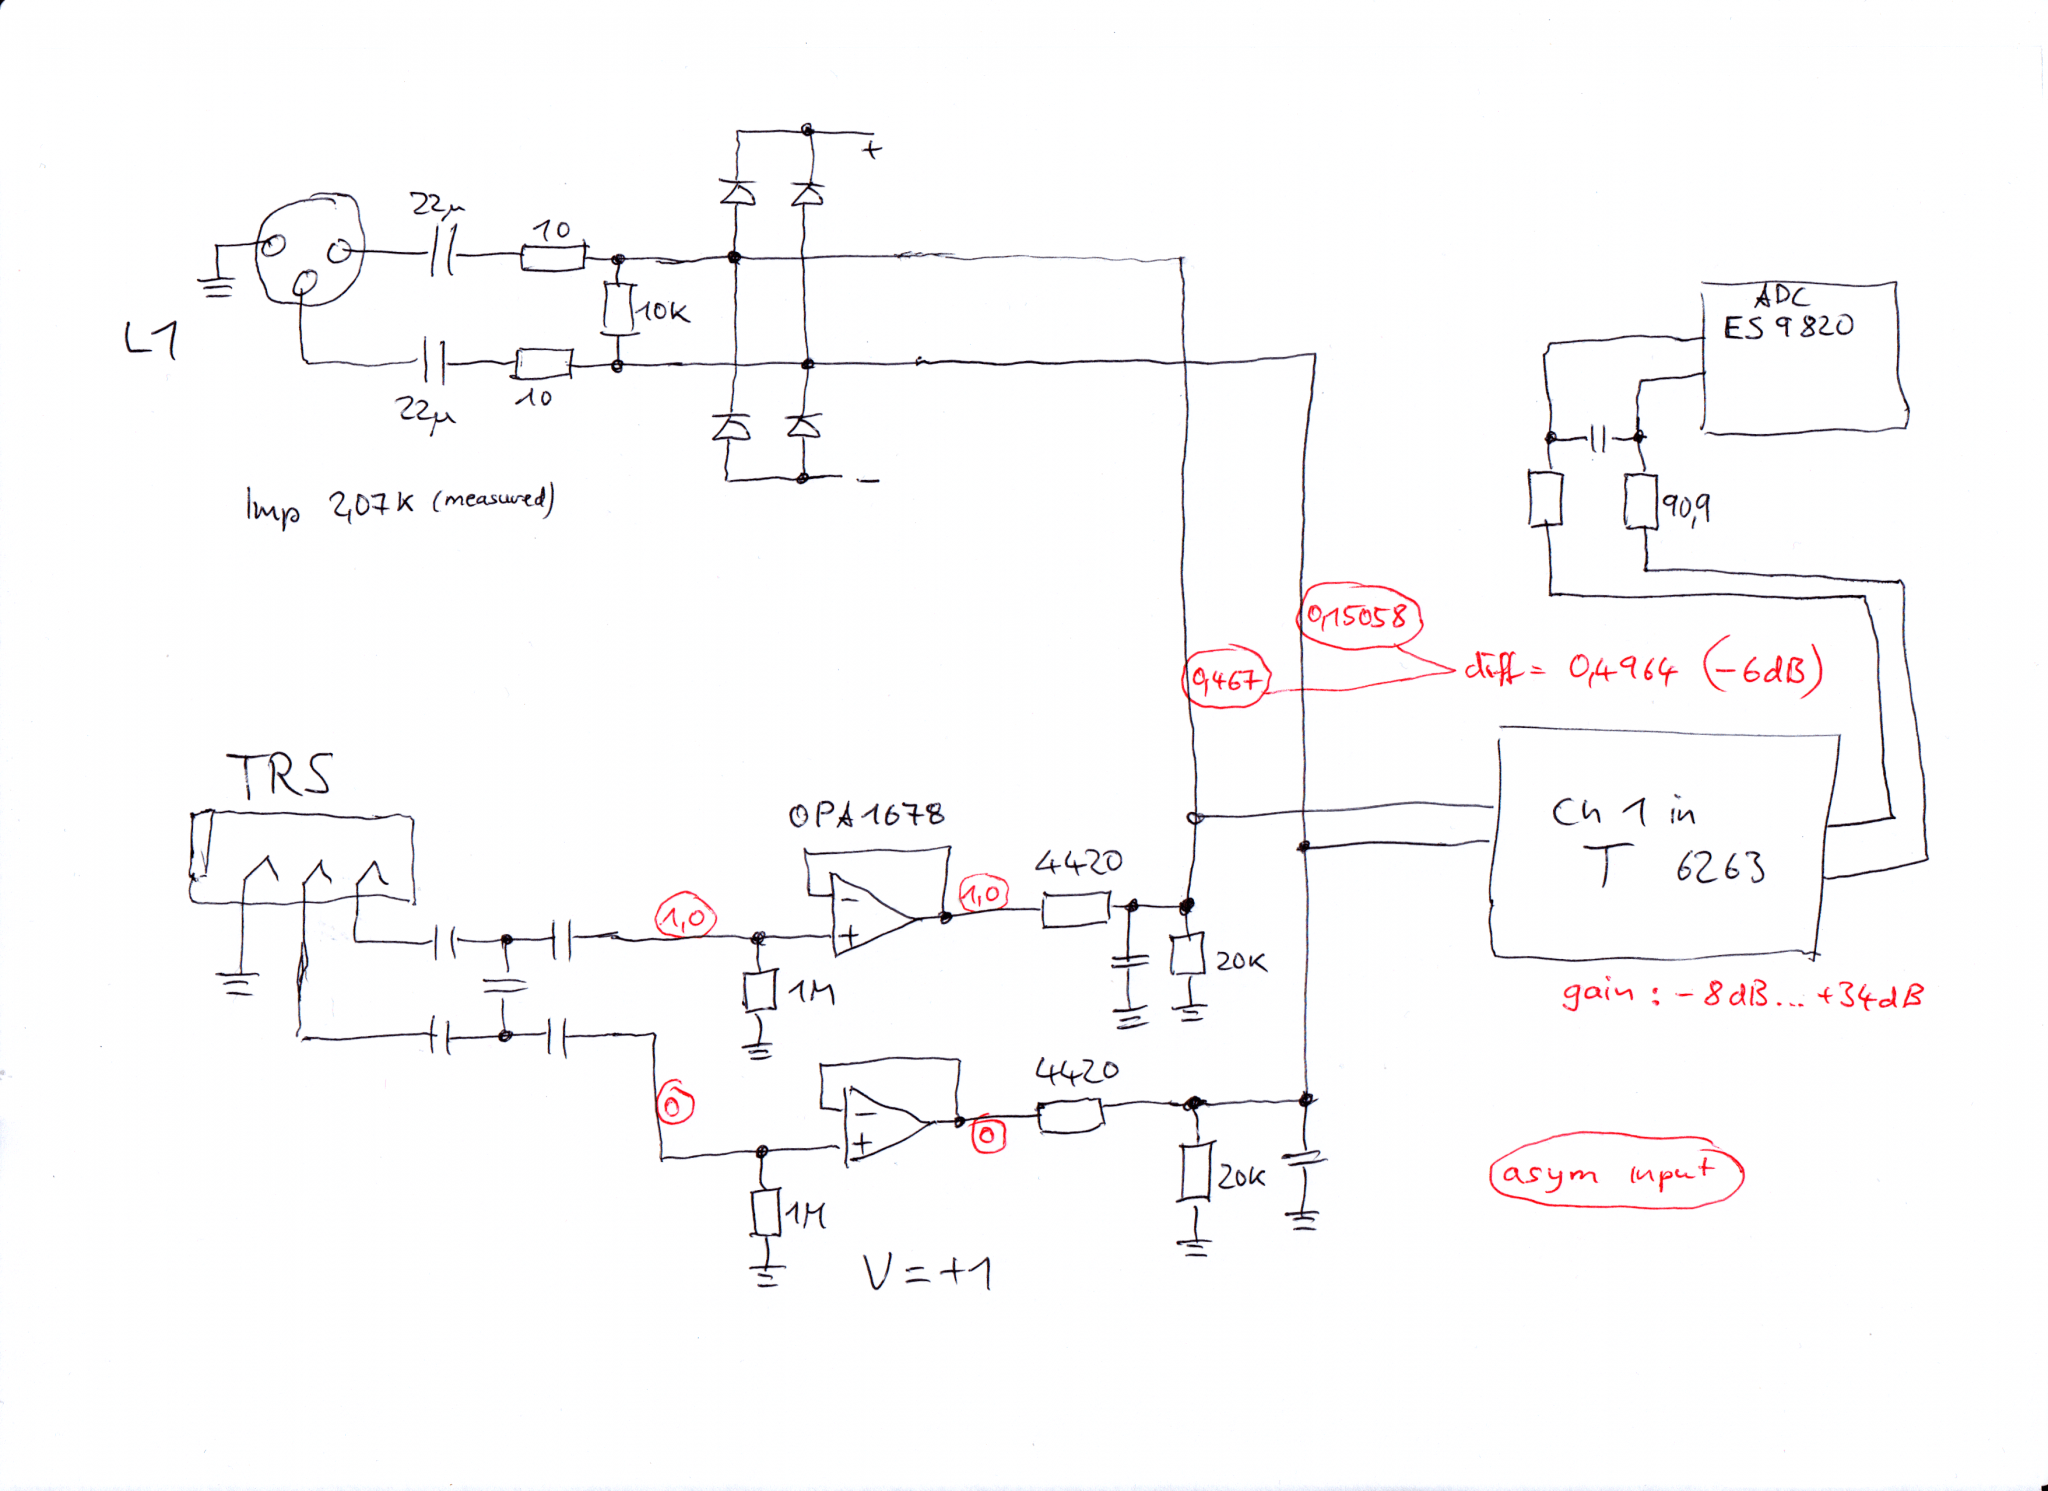 +
22µ
10
10K
L1
22µ
10
-
Imp 2,07K (measured)
ADC
ES 9820
90,9
0,15058
0,467
diff = 0,4964 (-6dB)
TRS
OPA1678
1,0
1,0
4420
-
+
1M
20K
Ch 1 in
T 6263
gain: -8dB... +34dB
0
4420
-
+
0
1M
20K
V = +1
asym input